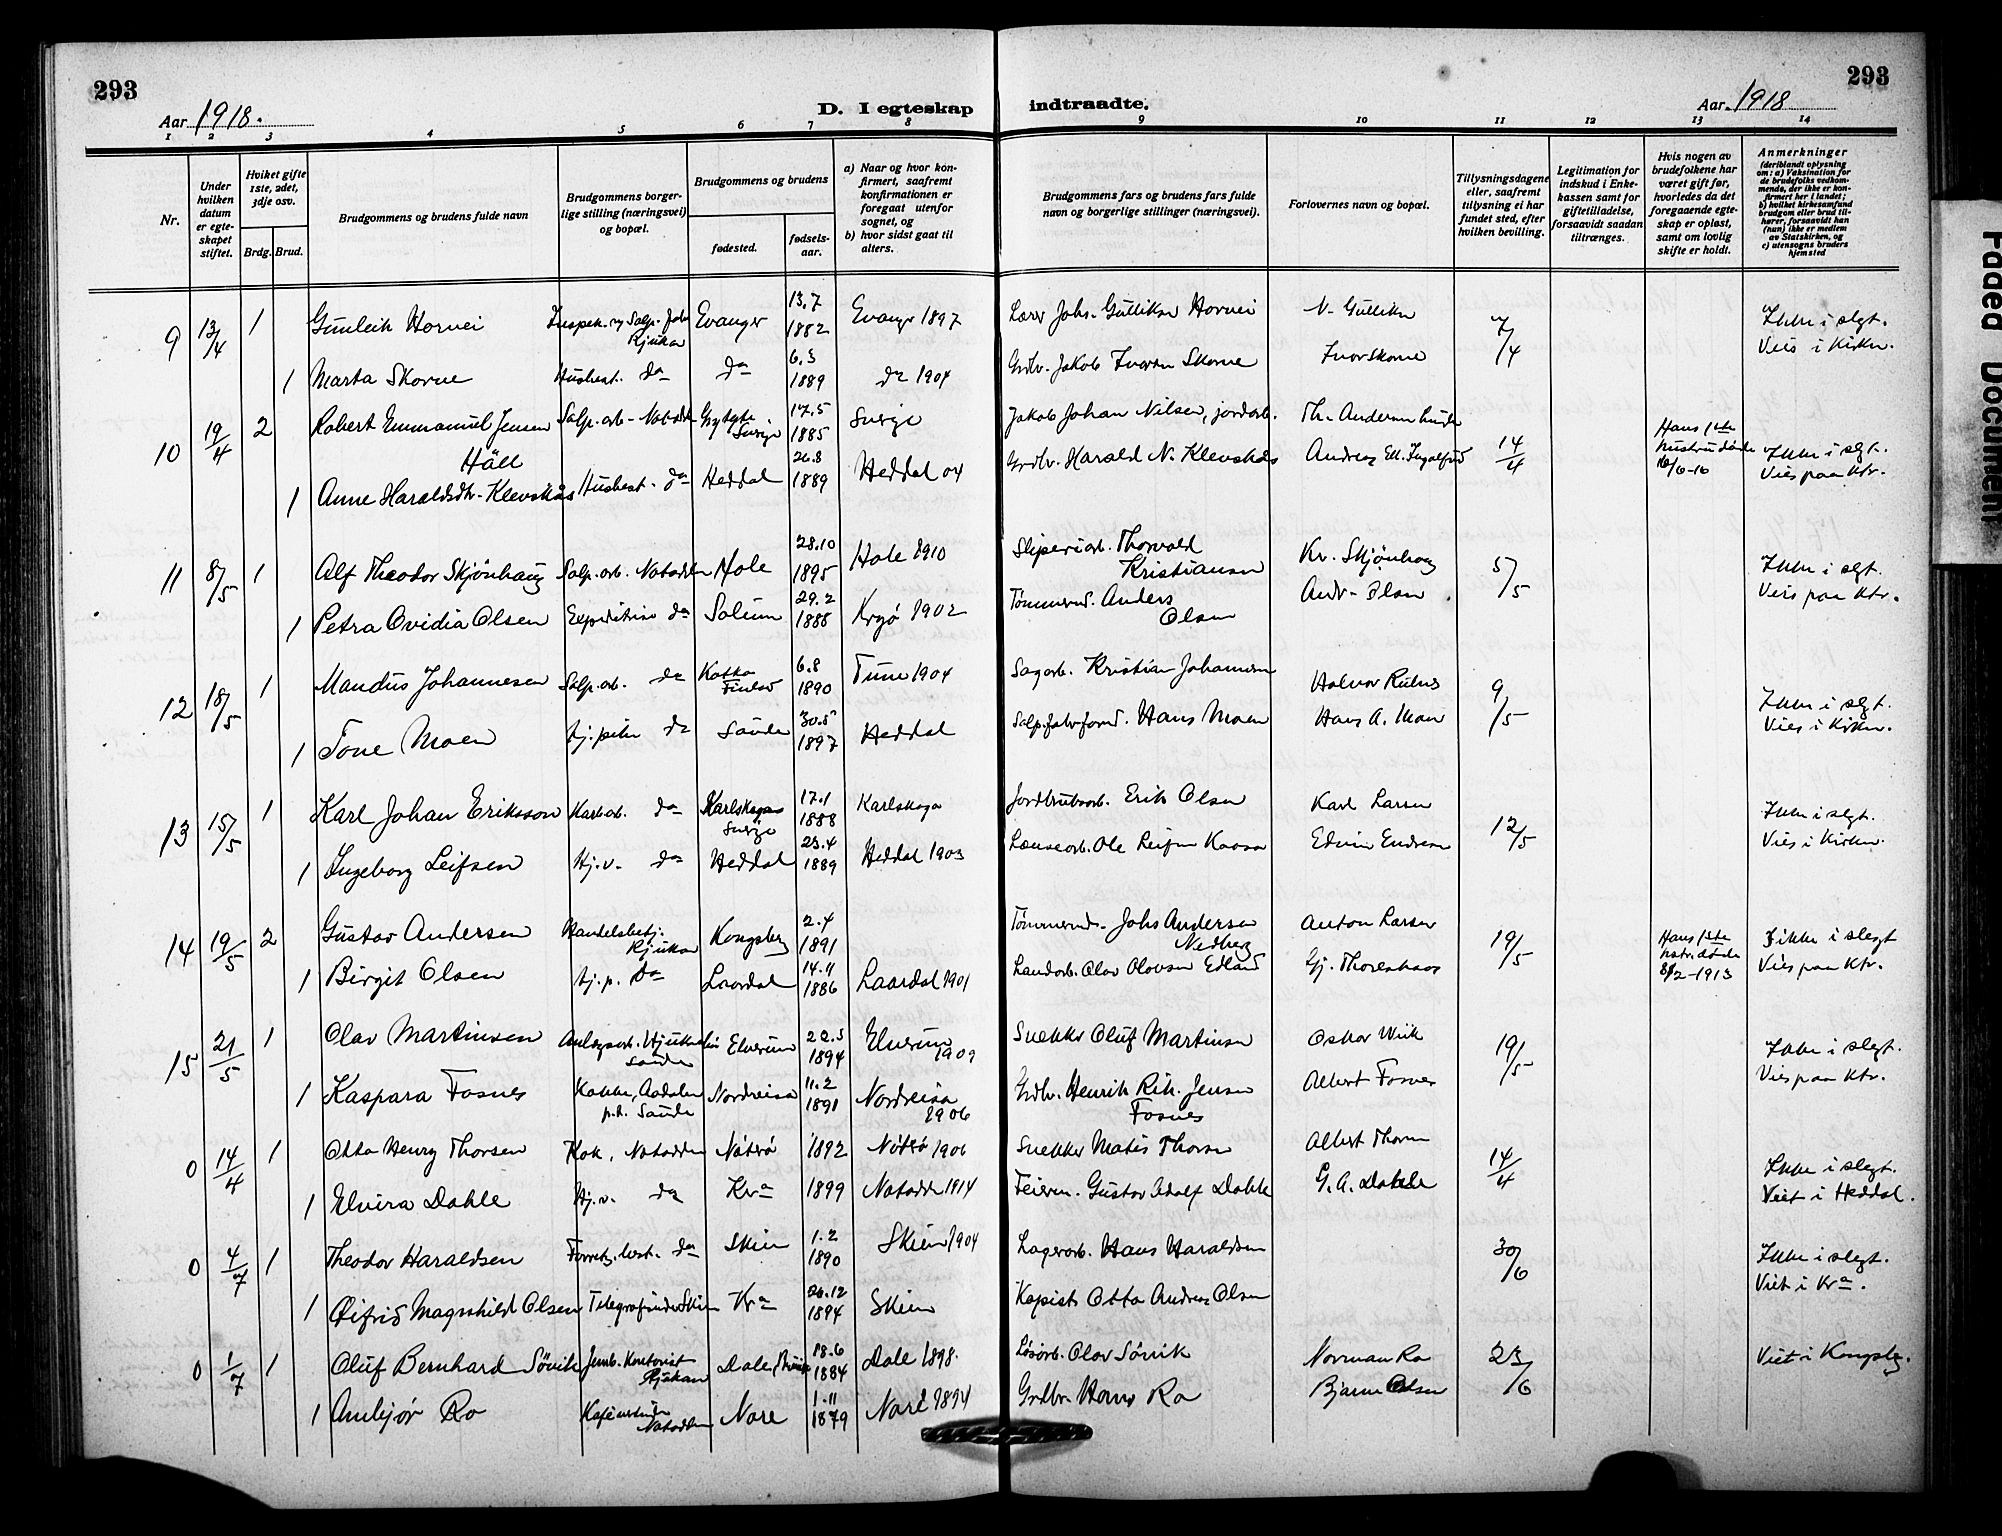 293
293
Aar 1918.
D. I egteskap indtraadte.
Aar 1918
1 2 3 4 5 6 7 8 9 10 11 12 13 14
Nr.
Under hvilken datum er egteskapet stiftet.
Hviket gifte 1ste, 2det, 3dje osv.
Brdg. Brud.
Brudgommens og brudens fulde navn
Brudgommens borgerlige stilling (næringsvei) og bopæl.
Brudgommens og brudens
fødested.
fødselsaar.
a) Naar og hvor konfirmert, saafremt konfirmationen er foregaat utenfor sognet, og
b) hvor sidst gaat til alters.
Brudgommens fars og brudens fars fulde navn og borgerlige stillinger (næringsvei).
Forlovernes navn og bopæl.
Tillysningsdagene eller, saafremt tillysning ei har fundet sted, efter hvilken bevilling.
Legitimation for indskud i Enkekassen samt for giftetilladelse, forsaavidt saadan tiltrænges.
Hvis nogen av brudefolkene har været gift før, hvorledes da det foregaaende egteskap er opløst, samt om lovlig skifte er holdt.
Anmerkninger
(deriblandt oplysning om: a) Vaksination for de brudefolks vedkommende, der ikke er konfirmert her i landet; b) hvilket kirkesamfund brudgom eller brud tilhører, forsaavidt han (hun) ikke er medlem av Statskirken, og c) utensogns bruders hjemsted
9 13/4 1 Gunleik Hornei Rjukan Evanger 13.7 1882 Evanger 1897 Lærer Johs. Gulliksen Hornei N. Gulliksen 7/4 Ikke i slegt. Vies i Kirken.
1 Marta Skorve Husbest. do do 6.3 1889 do 1904 Grdbr. Jakob Iversen Skorve Ivor Skorve
10 19/4 2 Robert Emmanuel Jensen Häll Salp. arb. Notodden Sverige 17.5 1885 Sverige Jakob Johan Nilsen, jordarb. Th. Andersen 14/4 Hans 1ste hustru døde 16/6-16 Ikke i slgt. Vies paa Ktr.
1 Anne Haraldsdtr. Klevskås Husbest. do Heddal 26.8 1889 Heddal 04 Grdbr. Harald N. Klevskås Andreas
11 8/5 1 Alf Theodor Skjønhaug Salp. arb. Notodden Hole 28.10 1895 Hole 1910 Sliperiarb. Thorvald Kristiansen Kr. Skjønhaug 5/5 Ikke i slgt. Vies paa Ktr.
1 Petra Ovidia Olsen do Solum 29.2 1888 Krgø 1902 Tømmermd. Anders Olsen Andr. Olsen
12 18/5 1 Mandus Johannesen Salp. arb. do Kotka Finland 6.8 1890 Tune 1904 Sagarb. Kristian Johannesen Halvor 9/5 Ikke i slgt. Vies i Kirken.
1 Tone Moen do Saude 30.5 1897 Heddal Hans Moen Hans A. Moen
13 15/5 1 Karl Johan Eriksson Karbarb. do Karlskoga Sverige 17.1 1888 Karlskoga Jordbruksarb. Erik Olsen Karl Larsen 12/5 Ikke i slgt. Vies i Kirken.
1 Ingeborg Leifsen Hj.v. do Heddal 23.4 1889 Heddal 1903 Lænsearb. Ole Leifsen Kaasa Edvin Endresen
14 19/5 2 Gustav Andersen Handelsbetj. Rjukan Kongsberg 2.4 1891 Tømmermd. Johs Andersen Nedberg Anton Larsen 19/5 Hans 1ste hstr. døde 8/2-1913 Ikke i slegt Vies paa Ktr.
1 Birgit Olsen Hj.p. do Laardal 14.11 1886 Laardal 1901 Landarb. Olav Olovsen Edland Gj. Thoreshaas
15 21/5 1 Olav Martinsen Saude Elverum 22.3 1894 Elverum 1909 Snekker Oluf Martinsen Oskar Wiik 19/5 Ikke i slegt. Vies paa Ktr.
1 Kaspara Fosnes Kokke, Aadalen p.t. Saude Nordreisa 11.2 1891 Nordreisa 1906 Grdbr. Henrik Rik. Jensen Fosnes Albert Fosnes
0 14/4 1 Otto Henry Thorsen Kok, Notodden Nøtrø 1892 Nøtrø 1906 Snekker Matis Thorsen Albert Thorsen 14/4 Ikke i slegt. Viet i Heddal.
1 Elvira Dahle Hj.v. do Kra 1899 Notodden 1914 Feierm. Gustav Adolf Dahle G. A. Dahle
0 4/7 1 Theodor Haraldsen Forretn. best. do Skien 1.2 1890 Skien 1904 Lagerarb. Hans Haraldsen 30/6 Ikke i slegt. Viet i Kra.
1 Magnhild Olsen Skien Kra 26.12 1894 Skien Kopist Otto Andreas Olsen
0 1/7 1 Oluf Bernhard Sönik Jernb. Kontorist Rjukan Dale 18.6 1884 Dale 1898. Olav Sönik Norman Ro 23/6 Viet i Kongsbg.
1 Ambjør Ro Notodden Nore 1.11 1879 Nore 1894 Grdbr. Hans Ro Bjarne Olsen
Faded Document